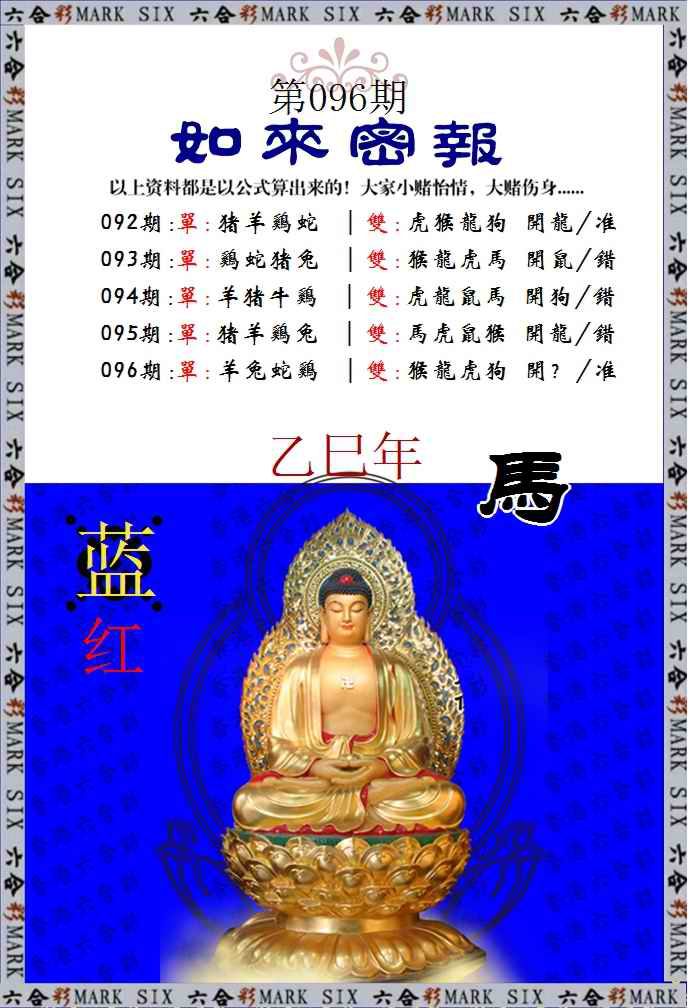 六合彩MARK SIX 六合彩MARK SIX 六合彩MARK SIX 六合彩MARK SIX 六合彩MARK SIX
第096期
如來密報
以上资料都是以公式算出来的！大家小赌怡情，大赌伤身......
092期:單:猪羊鷄蛇 | 雙:虎猴龍狗 開龍/准
093期:單:鷄蛇猪兔 | 雙:猴龍虎馬 開鼠/錯
094期:單:羊猪牛鷄 | 雙:虎龍鼠馬 開狗/錯
095期:單:猪羊鷄兔 | 雙:馬虎鼠猴 開龍/錯
096期:單:羊兔蛇鷄 | 雙:猴龍虎狗 開?/准
乙巳年
馬
蓝
红
六合彩MARK SIX 六合彩MARK SIX 六合彩MARK SIX 六合彩MARK SIX 六合彩MARK SIX